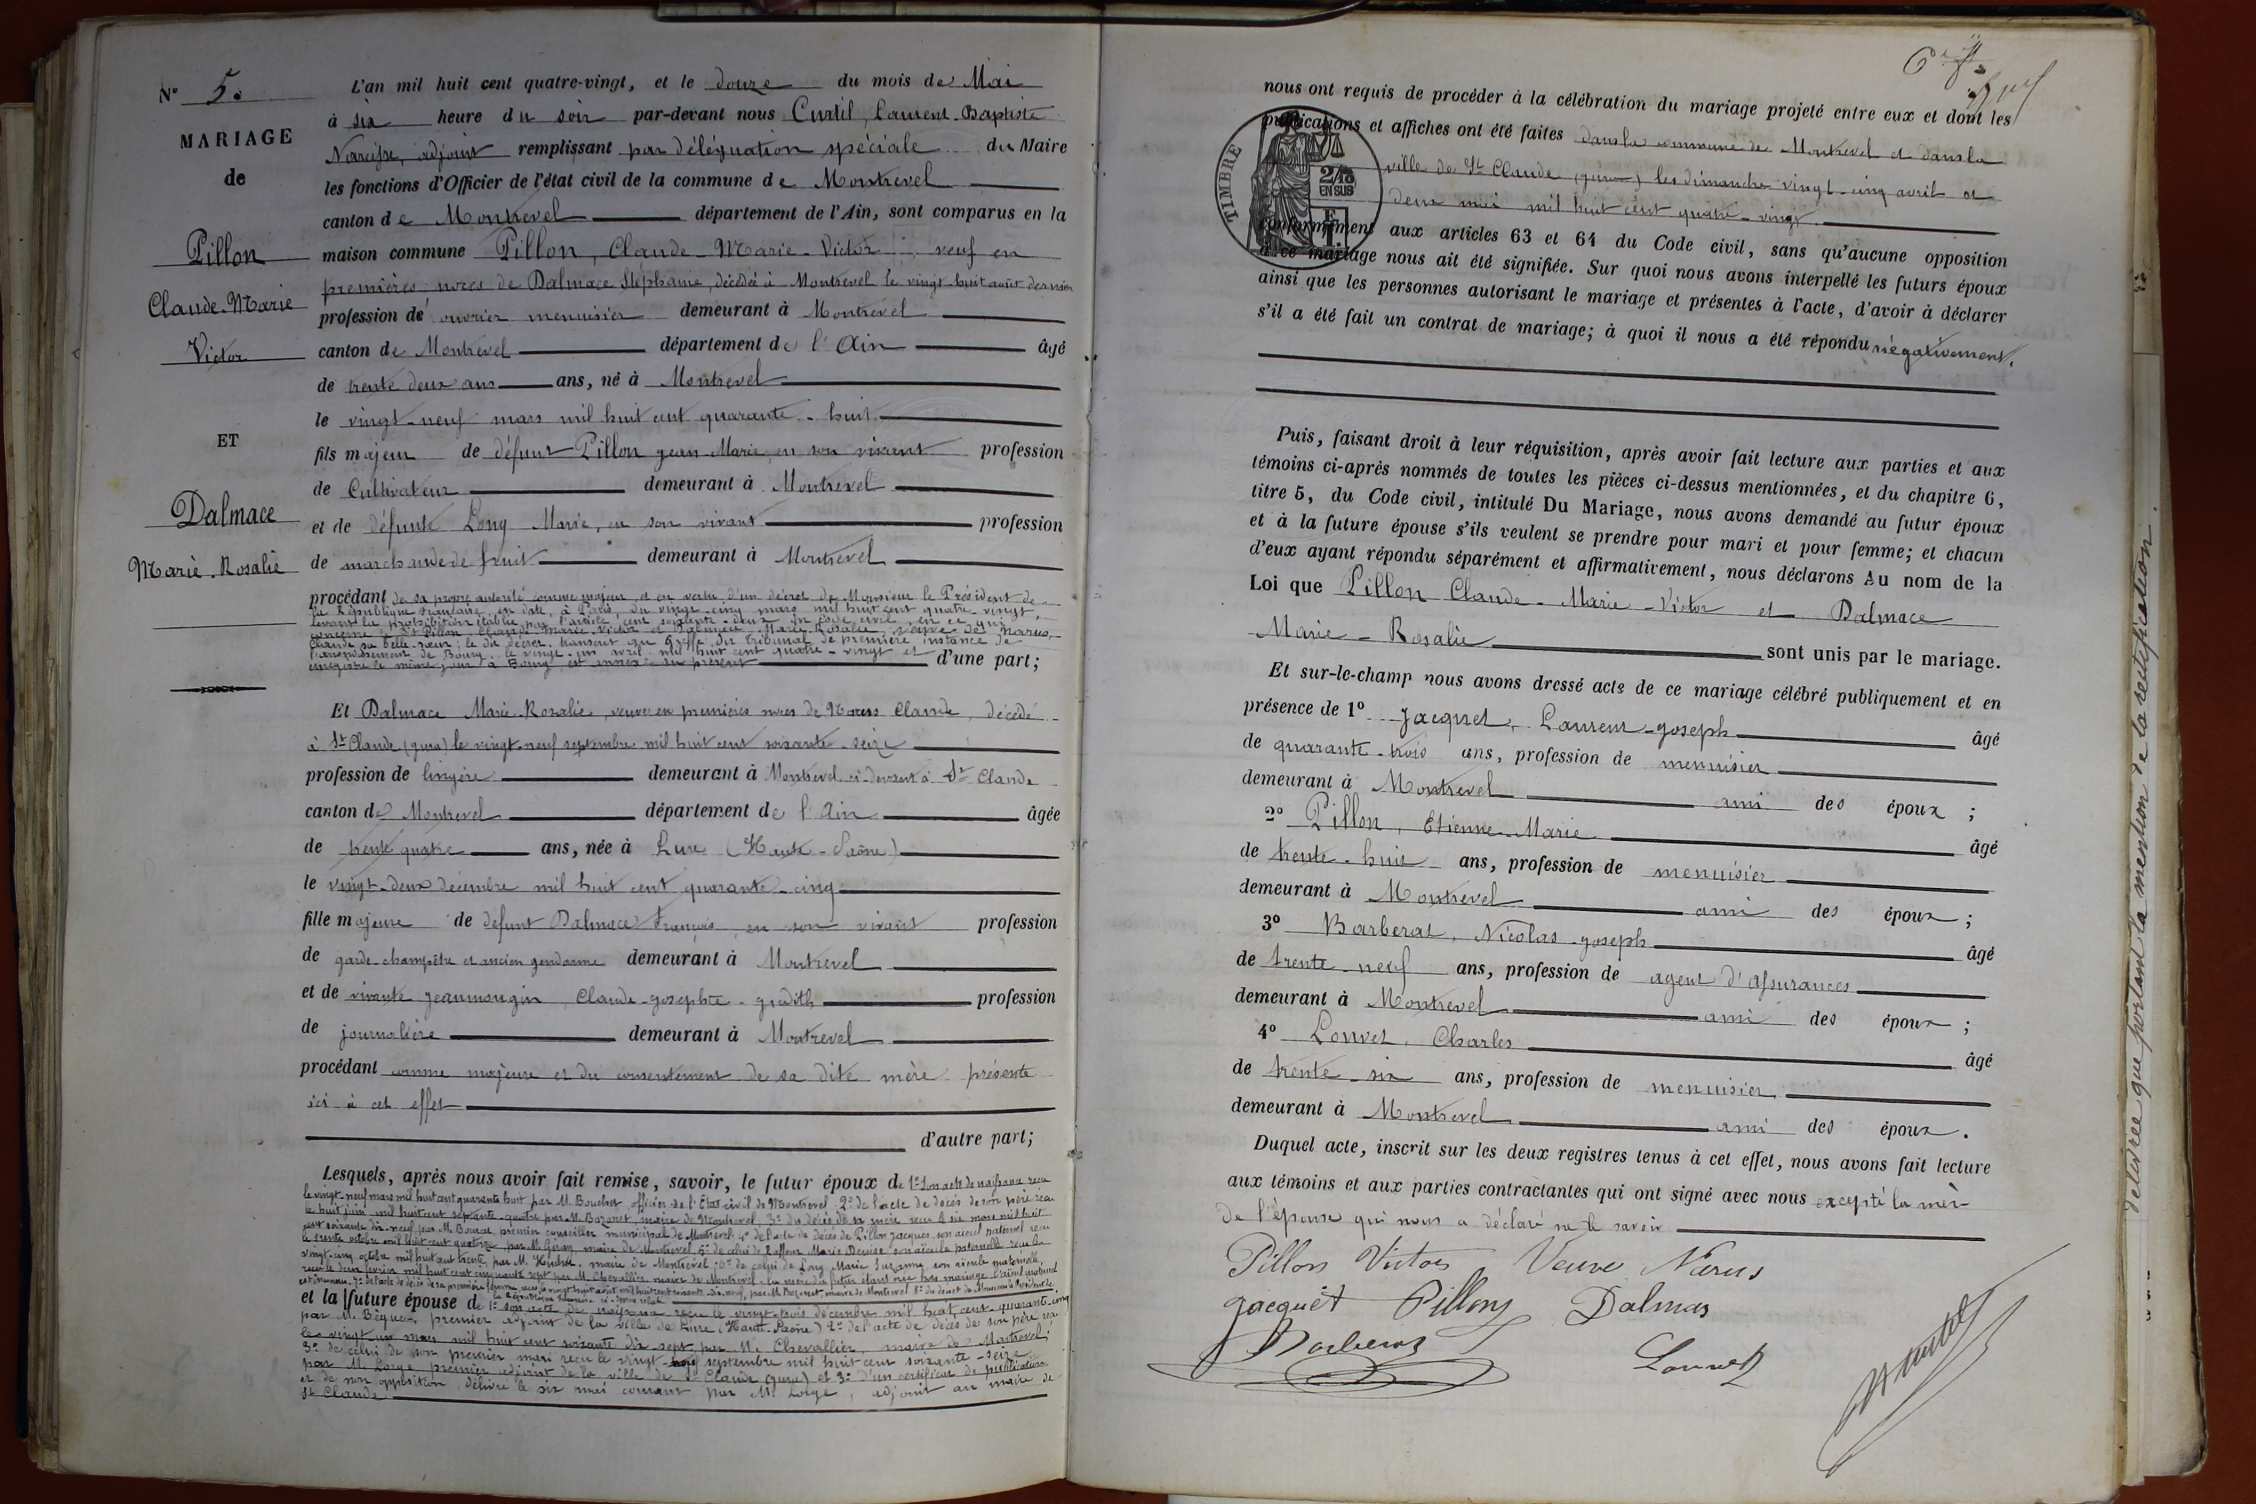 N° 5.
MARIAGE
de
Pillon
Claude-Marie
Victor
ET
Dalmace
Marie-Rosalie
L'an mil huit cent quatre-vingt, et le douze du mois de Mai
à six heure du soir par-devant nous Curtil, Laurent-Baptiste
Narcisse, adjoint remplissant par déléguation spéciale du Maire
les fonctions d'Officier de l'état civil de la commune de Montrevel
canton de Montrevel département de l'Ain, sont comparus en la
maison commune Pillon, Claude-Marie-Victor, veuf en
premières noces de Dalmace Stéphanie, décédée à Montrevel le vingt-huit août dernier
profession de ouvrier menuisier demeurant à Montrevel
canton de Montrevel département de l'Ain âgé
de trente deux ans ans, né à Montrevel
le vingt-neuf mars mil huit cent quarante-huit
fils majeur de défunt Pillon Jean-Marie, en son vivant profession
de Cultivateur demeurant à Montrevel
et de défunte Lony Marie, en son vivant profession
de marchande de fruit demeurant à Montrevel
procédant de sa propre autorité comme majeur, et en vertu d'un décret de Monsieur le Président de
la République française, en date, à Paris, du vingt-cinq mars mil huit cent quatre-vingt,
levant la prohibition établie par l'article cent soixante-deux du code civil, en ce qui
concerne le Sr Pillon, Claude-Marie-Victor et Dalmace Marie-Rosalie, veuve de Narus,
Claude sa belle-sœur; le dit décret, transcrit au Greffe du tribunal de première instance de
l'arrondissement de Bourg, le vingt-un avril mil huit cent quatre-vingt et
enregistré le même jour à Bourg est annexé au présent d'une part;
Et Dalmace Marie-Rosalie, veuve en premières noces de Narus Claude, décédé
à St Claude (Jura) le vingt-neuf septembre mil huit cent soixante-seize
profession de lingère demeurant à Montrevel ci-devant à St Claude
canton de Montrevel département de l'Ain âgée
de trente quatre ans, née à Lure (Haute-Saône)
le vingt-deux décembre mil huit cent quarante-cinq
fille majeure de défunt Dalmace François, en son vivant profession
de garde-champêtre et ancien gendarme demeurant à Montrevel
et de vivante Jeanmougin, Claude-Josephte-Judith profession
de journalière demeurant à Montrevel
procédant comme majeure et du consentement de sa dite mère présente
ici à cet effet
d'autre part;
Lesquels, après nous avoir fait remise, savoir, le futur époux de 1° son acte de naissance reçu
le vingt-neuf mars mil huit cent quarante huit par M. officier de l'Etat civil de Montrevel 2° de l'acte de décès de son père reçu
le huit juin mil huit cent septante-quatre par M. maire de Montrevel 3° du décès de sa mère reçu le six mars mil huit
cent soixante dix-neuf par M. premier conseiller municipal de Montrevel 4° de l'acte de décès de Pillon Jacques, son aïeul paternel reçu
le trente octobre mil huit cent quatorze par M. maire de Montrevel 5° de celui de Marie Denise son aïeule paternelle reçu le
vingt-cinq octobre mil huit cent trente, par M. maire de Montrevel 6° de celui de Lony Marie Suzanne, son aïeule maternelle,
reçu le deux février mil huit cent cinquante sept par M. Chevallier maire de Montrevel, la mère du futur étant née hors mariage l'aïeul maternel
est inconnu, 7° de l'acte de décès de sa première femme, reçu le vingt-huit août mil huit cent soixante-dix-neuf, par M. maire de Montrevel 8° du décret de Monsieur le Président de
la République
et la future épouse de 1° son acte de naissance reçu le vingt-trois décembre mil huit cent quarante-cinq
par M. premier adjoint de la ville de Lure (Haute-Saône) 2° de l'acte de décès de son père reçu
le vingt-un mars mil huit cent soixante dix-sept par M. Chevallier, maire de Montrevel;
3° de celui de son premier mari reçu le vingt-neuf septembre mil huit cent soixante-seize
par M. Lorge premier adjoint de la ville de St Claude (Jura) et 3° d'un certificat de publication
et de non opposition, délivré le six mai courant par M. Lorge, adjoint au maire de
St Claude
6e f.
TIMBRE
2/10
EN SUS
nous ont requis de procéder à la célébration du mariage projeté entre eux et dont les
publications et affiches ont été faites dans la commune de Montrevel et dans la
ville de St Claude (Jura) les dimanche vingt-cinq avril et
deux mai mil huit cent quatre-vingt
conformément aux articles 63 et 64 du Code civil, sans qu'aucune opposition
à ce mariage nous ait été signifiée. Sur quoi nous avons interpellé les futurs époux
ainsi que les personnes autorisant le mariage et présentes à l'acte, d'avoir à déclarer
s'il a été fait un contrat de mariage; à quoi il nous a été répondu négativement.
Puis, faisant droit à leur réquisition, après avoir fait lecture aux parties et aux
témoins ci-après nommés de toutes les pièces ci-dessus mentionnées, et du chapitre 6,
titre 5, du Code civil, intitulé Du Mariage, nous avons demandé au futur époux
et à la future épouse s'ils veulent se prendre pour mari et pour femme; et chacun
d'eux ayant répondu séparément et affirmativement, nous déclarons Au nom de la
Loi que Pillon Claude-Marie-Victor et Dalmace
Marie-Rosalie sont unis par le mariage.
Et sur-le-champ nous avons dressé acte de ce mariage célébré publiquement et en
présence de 1° Jacquet, Laurent-Joseph âgé
de quarante-trois ans, profession de menuisier
demeurant à Montrevel ami des époux;
2° Pillon, Etienne-Marie âgé
de trente-huit ans, profession de menuisier
demeurant à Montrevel ami des époux;
3° Barberat, Nicolas-Joseph âgé
de trente-neuf ans, profession de agent d'assurances
demeurant à Montrevel ami des époux;
4° Louvet, Charles âgé
de trente-six ans, profession de menuisier
demeurant à Montrevel ami des époux.
Duquel acte, inscrit sur les deux registres tenus à cet effet, nous avons fait lecture
aux témoins et aux parties contractantes qui ont signé avec nous excepté la mère
de l'épouse qui nous a déclaré ne le savoir
Pillon Victor Veuve Narus
Jacquet Pillon Dalmas
Barberat Louvet
N Curtil
Délivrée que portant la mention de la rectification.